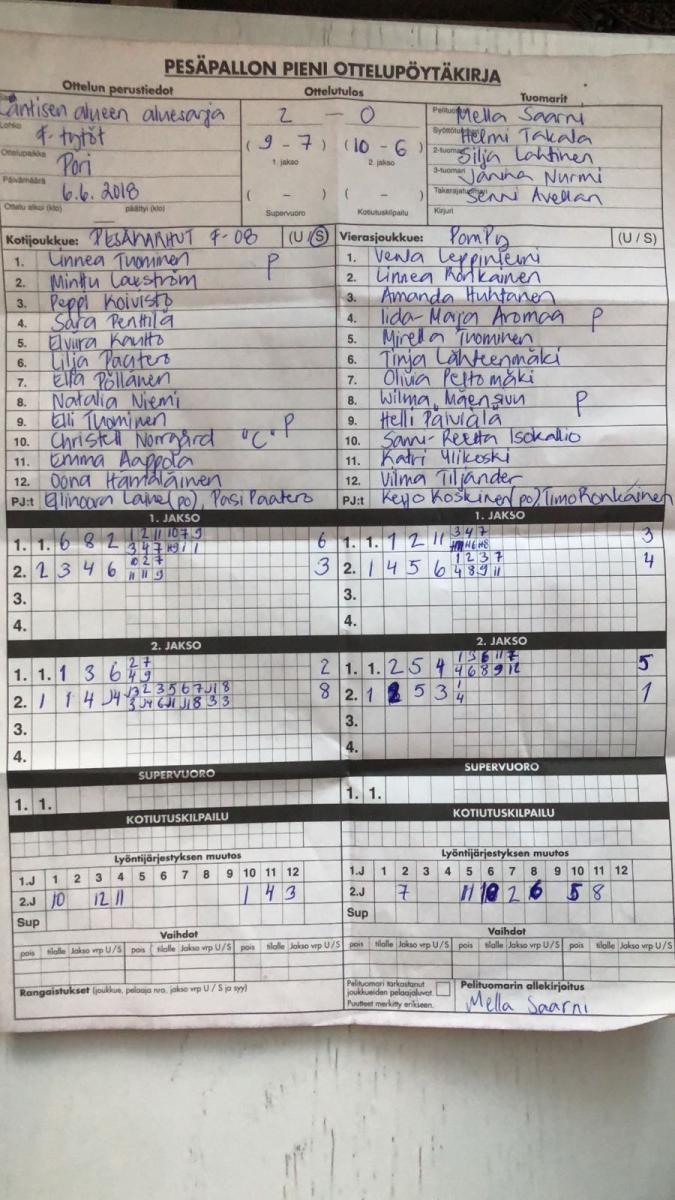 PESÄPALLON PIENI OTTELUPÖYTÄKIRJA
Ottelun perustiedot Ottelutulos Tuomarit
Läntisen alueen aluesarja
Lohko F-tytöt
Ottelupaikka Pori
Päivämäärä 6.6.2018
Ottelu alkoi (klo) päättyi (klo)
2 - 0
(9 - 7) (10 - 6)
1. jakso 2. jakso
( - ) ( - )
Supervuoro Kotiutuskilpailu
Mella Saarni
Helmi Takala
2-tuomari Silja Lahtinen
3-tuomari Janina Nurmi
Senni Avellan
Kirjuri
Kotijoukkue: PESÄKARHUT F-08 (U/S)
1. Linnea Tuominen P
2. Minttu
3. Peppi Koivisto
4. Sara Penttilä
5. Elviira Kautto
6. Lilja Paatero
7. Ella Pöllänen
8. Natalia Niemi
9. Elli Tuominen P
10. Christell Norrgård "C"
11. Emma Aappola
12. Oona Hämäläinen
PJ:t Ellinoora Laine (po), Pasi Paatero
Vierasjoukkue: PomPy (U / S)
1. Venla Leppiniemi
2. Linnea Ronkainen
3. Amanda Huhtanen
4. Iida-Maija Aromaa P
5. Mirella Tuominen
6. Tinja Lähteenmäki
7. Olivia Peltomäki
8. Wilma Mäensivu P
9. Helli Päiviälä
10. Sanni-Reetta Isokallio
11. Katri Ylikoski
12. Vilma Tiljander
PJ:t Keijo Koskinen (po), Timo Ronkainen
1. JAKSO
1. 1. 6 8 2 6
2. 2 3 4 6 3
3.
4.
1. JAKSO
1. 1. 1 2 11 3 4 7 3
2. 1 4 5 6 1 2 3 7 4 8 9 11 4
3.
4.
2. JAKSO
1. 1. 1 3 6 2 7 4 9 2
2. 1 1 4 8
3.
4.
2. JAKSO
1. 1. 2 5 4 1 3 6 11 7 4 6 8 9 12 5
2. 1 2 5 3 1 4 1
3.
4.
SUPERVUORO
1. 1.
SUPERVUORO
1. 1.
KOTIUTUSKILPAILU
KOTIUTUSKILPAILU
Lyöntijärjestyksen muutos
1.J 1 2 3 4 5 6 7 8 9 10 11 12
2.J 10 12 11 1 4 3
Sup
Lyöntijärjestyksen muutos
1.J 1 2 3 4 5 6 7 8 9 10 11 12
2.J 7 11 2 6 5 8
Sup
Vaihdot
pois tilalle Jakso vrp U/S pois tilalle Jakso vrp U/S pois tilalle Jakso vrp U/S
Vaihdot
pois tilalle Jakso vrp U/S pois tilalle Jakso vrp U/S pois tilalle Jakso vrp U/S
Rangaistukset (joukkue, pelaaja nro. jakso vrp U / S ja syy)
Pelituomari tarkastanut
joukkueiden pelaajaluvat.
Puutteet merkitty erikseen.
Pelituomarin allekirjoitus
Mella Saarni